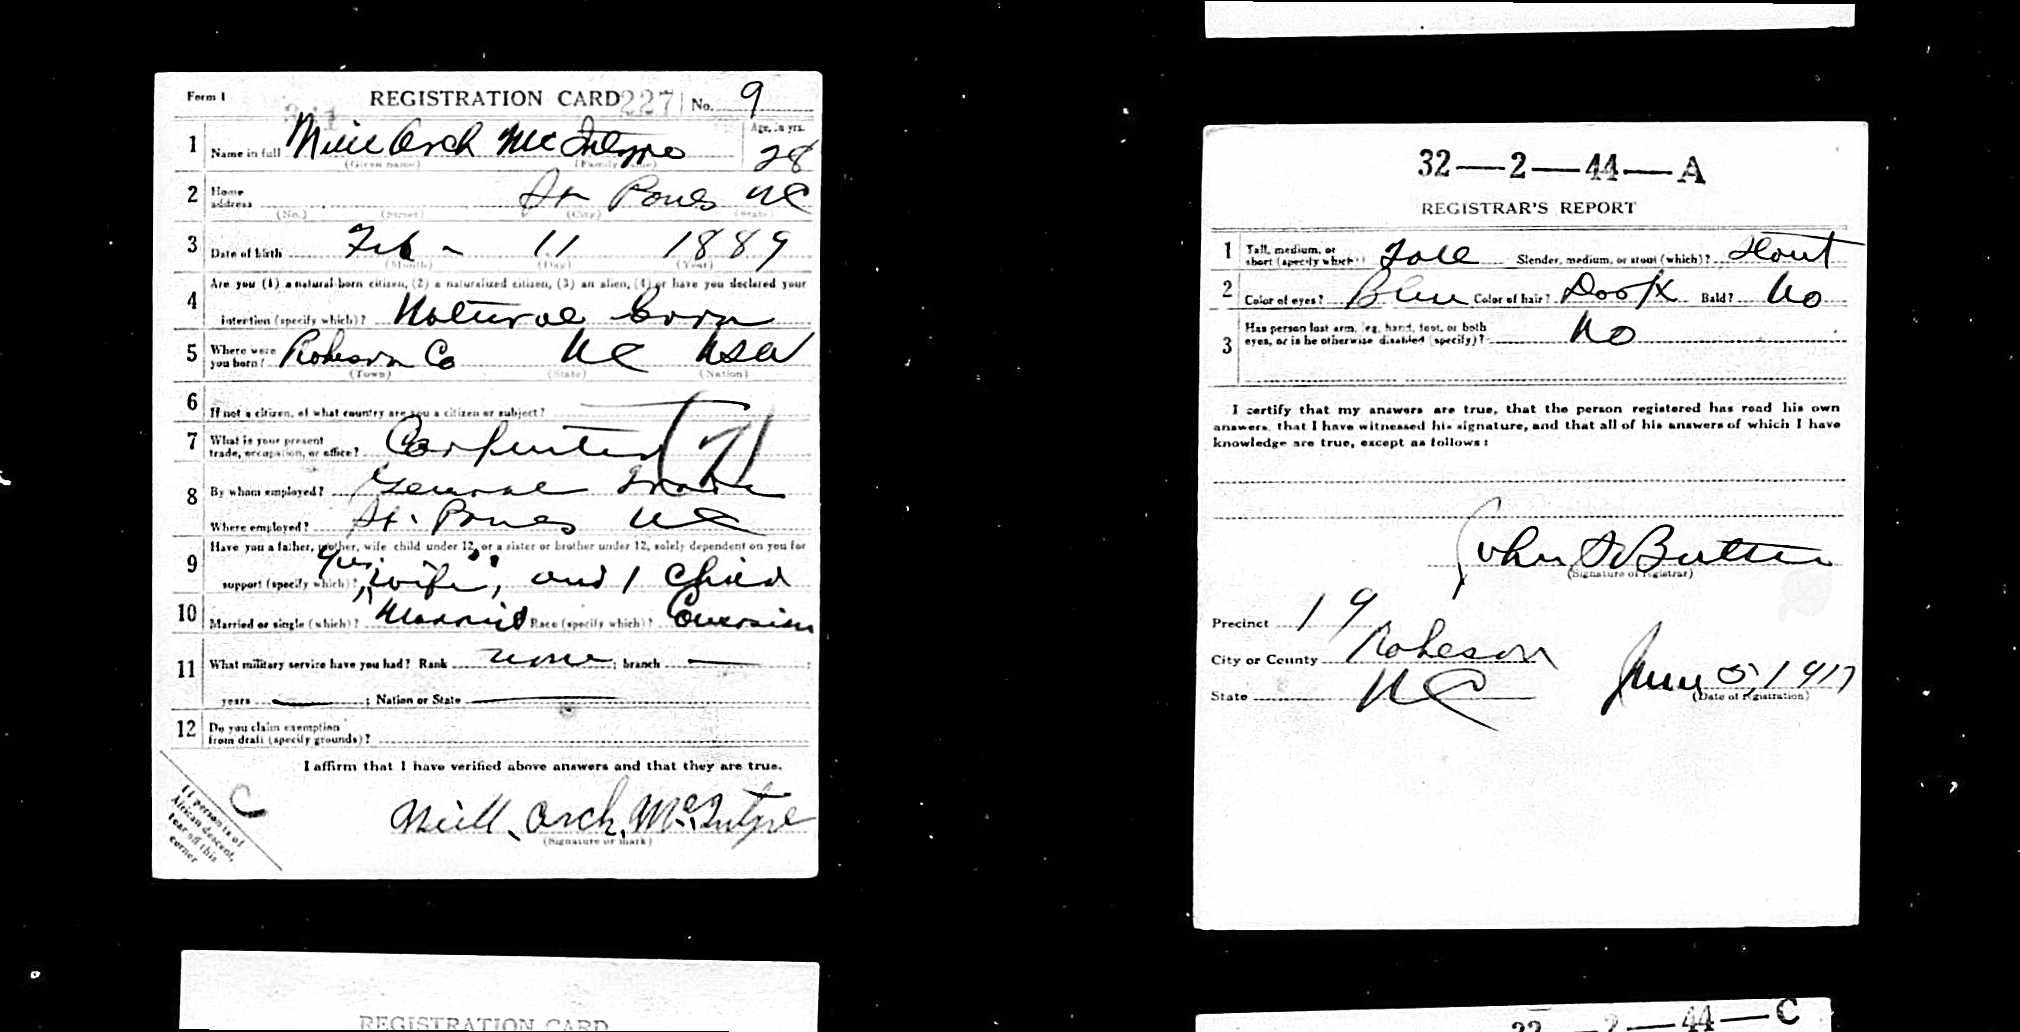 Form 1 REGISTRATION CARD 227 No. 9
1 Name in full Neill Arch McIntyre Age, in yrs. 28
(Given name) (Family name)
2 Home address St Pauls NC
(No.) (Street) (City) (State)
3 Date of birth Feb - 11 1889
(Month) (Day) (Year)
4 Are you (1) a natural-born citizen, (2) a naturalized citizen, (3) an alien, (4) or have you declared your
intention (specify which)? Natural Born
5 Where were you born? Robeson Co NC USA
(Town) (State) (Nation)
6 If not a citizen, of what country are you a citizen or subject?
7 What is your present trade, occupation, or office? Carpenter
8 By whom employed? General
Where employed? St. Pauls NC
9 Have you a father, mother, wife child under 12, or a sister or brother under 12, solely dependent on you for
support (specify which)? Yes, wife, and 1 child
10 Married or single (which)? Married Race (specify which)?
11 What military service have you had? Rank none ; branch — ;
years — ; Nation or State —
12 Do you claim exemption from draft (specify grounds)?
I affirm that I have verified above answers and that they are true.
Neill, Arch, McIntyre
(Signature or mark)
If person is of
African descent,
tear off this
corner
C
REGISTRATION CARD
32—2—44—A
REGISTRAR'S REPORT
1 Tall, medium, or short (specify which)? Tall Slender, medium, or stout (which)? Stout
2 Color of eyes? Blue Color of hair? Dark Bald? No
3 Has person lost arm, leg, hand, foot, or both
eyes, or is he otherwise disabled (specify)? No
I certify that my answers are true, that the person registered has read his own
answers, that I have witnessed his signature, and that all of his answers of which I have
knowledge are true, except as follows:
John Butler
(Signature of registrar)
Precinct 19
City or County Robeson
State NC June 5, 1917
(Date of registration)
32—2—44—C